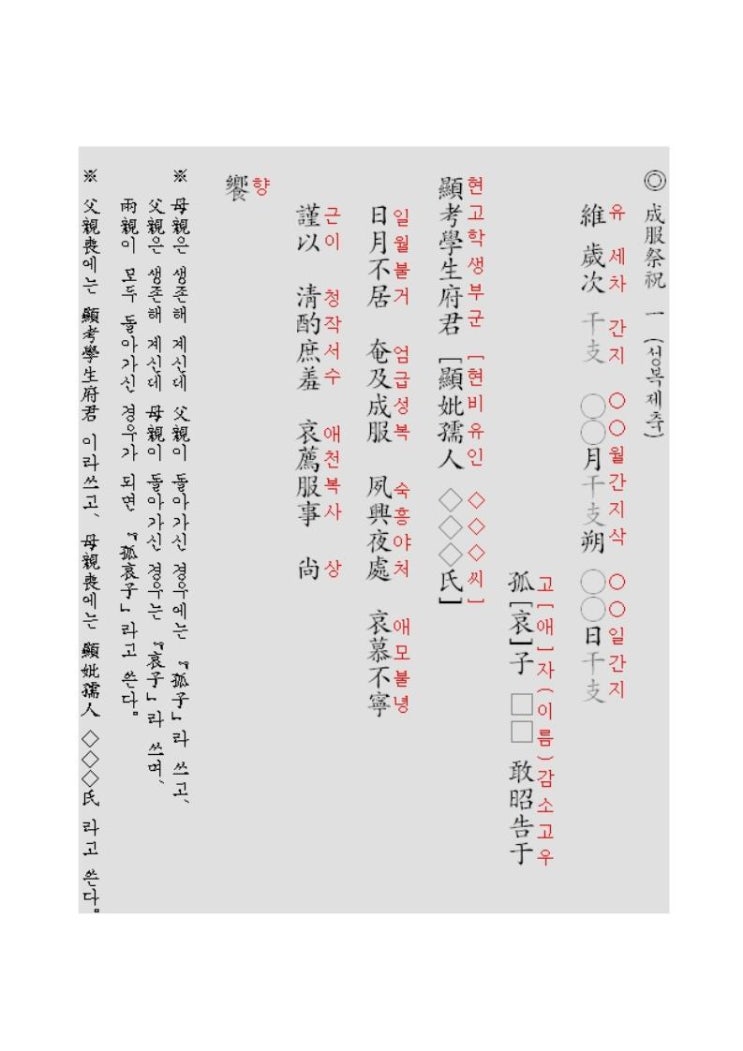 ◎ 成服祭祝 一 (성복제축)
유 세차 간지 ○○월간지삭 ○○일간지
維 歲次 干支 ○○月干支朔 ○○日干支
고[애]자(이름)감소고우
孤[哀]子 □□ 敢昭告于
현고학생부군 [현비유인 ◇◇◇씨]
顯考學生府君 [顯妣孺人 ◇◇◇氏]
일월불거 엄급성복 숙흥야처 애모불녕
日月不居 奄及成服 夙興夜處 哀慕不寧
근이 청작서수 애천복사 상
謹以 淸酌庶羞 哀薦服事 尙
향
饗
※ 母親은 생존해 계신데 父親이 돌아가신 경우에는 『孤子』라 쓰고、
父親은 생존해 계신데 母親이 돌아가신 경우는 『哀子』라 쓰며、
兩親이 모두 돌아가신 경우가 되면 『孤哀子』라고 쓴다。
※ 父親喪에는 顯考學生府君 이라쓰고、 母親喪에는 顯妣孺人 ◇◇◇氏 라고 쓴다。